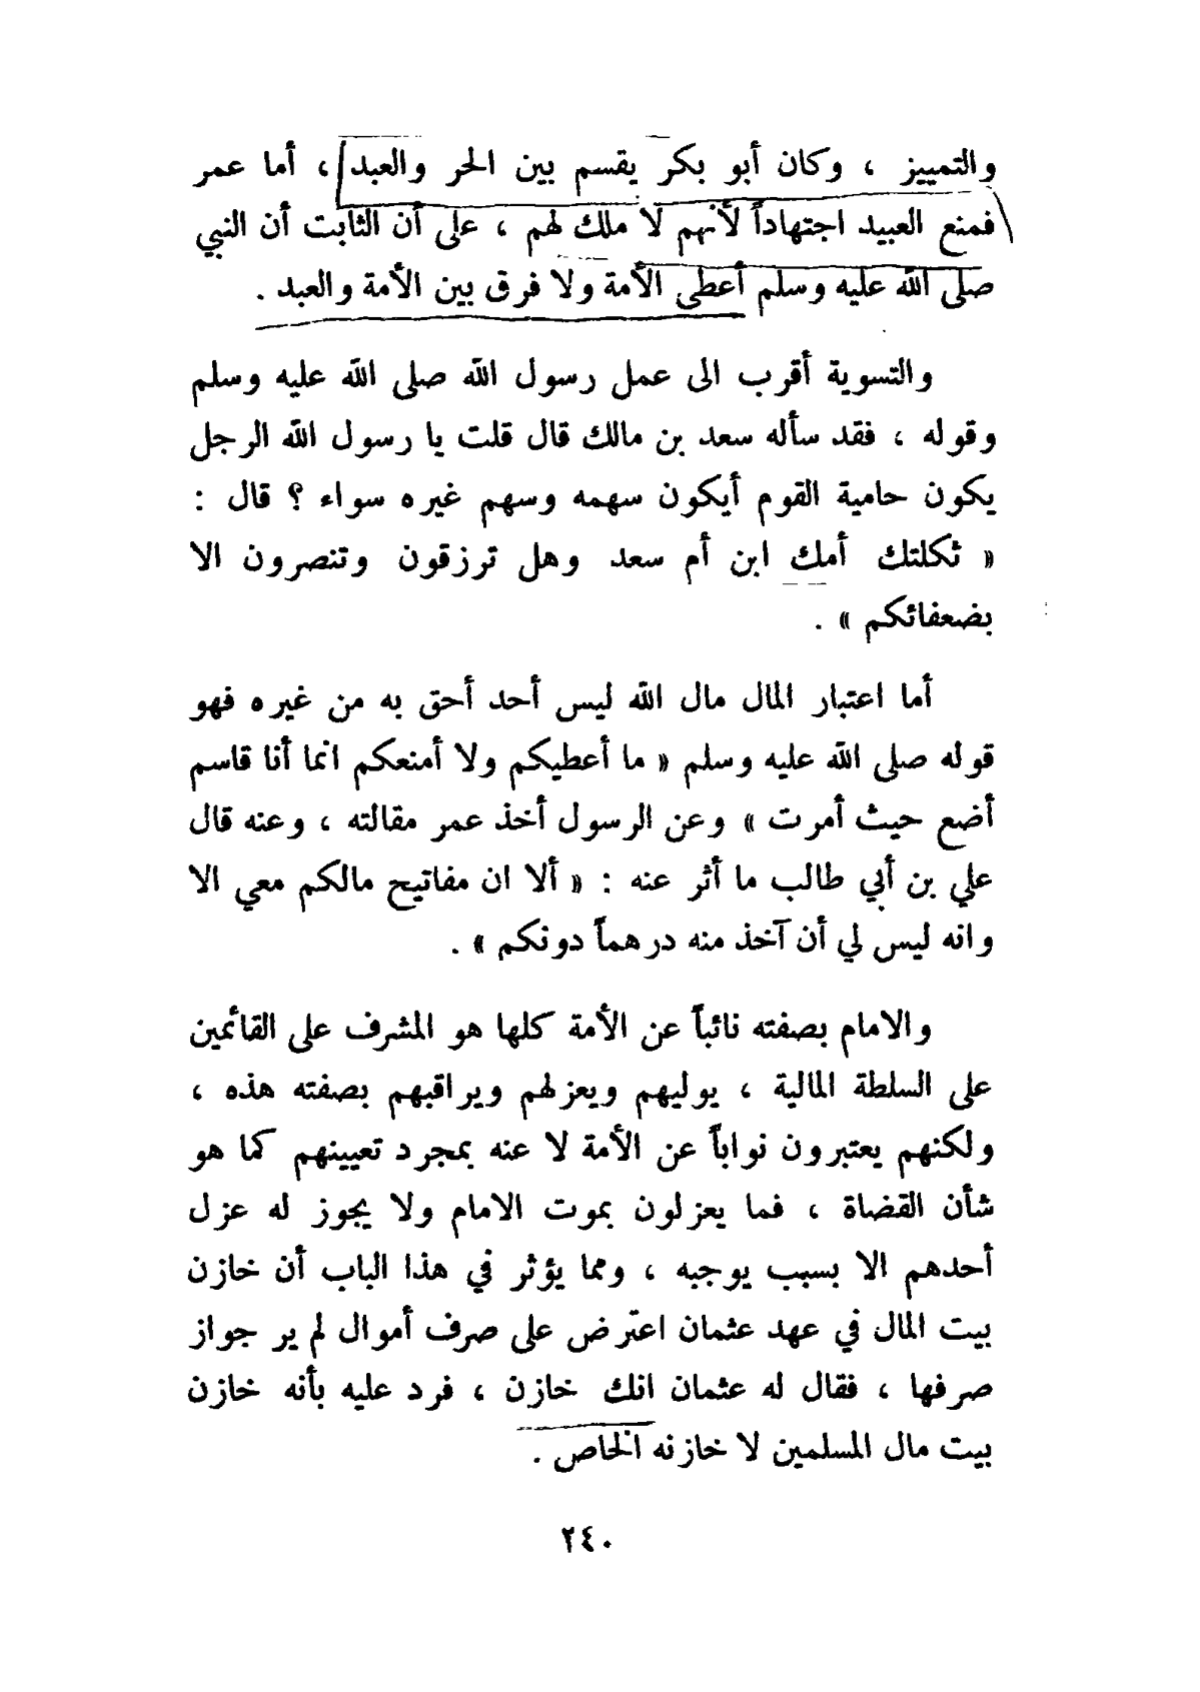 والتمييز ، وكان أبو بكر يقسم بين الحر والعبد ، أما عمر
فمنع العبيد اجتهاداً لأنهم لا ملك لهم ، على أن الثابت أن النبي
صلى الله عليه وسلم أعطى الأمة ولا فرق بين الأمة والعبد .
والتسوية أقرب الى عمل رسول الله صلى الله عليه وسلم
وقوله ، فقد سأله سعد بن مالك قال قلت يا رسول الله الرجل
يكون حامية القوم أيكون سهمه وسهم غيره سواء ؟ قال :
« ثكلتك أمك ابن أم سعد وهل ترزقون وتنصرون الا
بضعفائكم » .
أما اعتبار المال مال الله ليس أحد أحق به من غيره فهو
قوله صلى الله عليه وسلم « ما أعطيكم ولا أمنعكم انما أنا قاسم
أضع حيث أمرت » وعن الرسول أخذ عمر مقالته ، وعنه قال
علي بن أبي طالب ما أثر عنه : « ألا ان مفاتيح مالكم معي الا
وانه ليس لي أن آخذ منه درهماً دونكم » .
والامام بصفته نائباً عن الأمة كلها هو المشرف على القائمين
على السلطة المالية ، يوليهم ويعزلهم ويراقبهم بصفته هذه ،
ولكنهم يعتبرون نواباً عن الأمة لا عنه بمجرد تعيينهم كما هو
شأن القضاة ، فما يعزلون بموت الامام ولا يجوز له عزل
أحدهم الا بسبب يوجبه ، ومما يؤثر في هذا الباب أن خازن
بيت المال في عهد عثمان اعترض على صرف أموال لم ير جواز
صرفها ، فقال له عثمان انك خازن ، فرد عليه بأنه خازن
بيت مال المسلمين لا خازنه الخاص .
٢٤٠